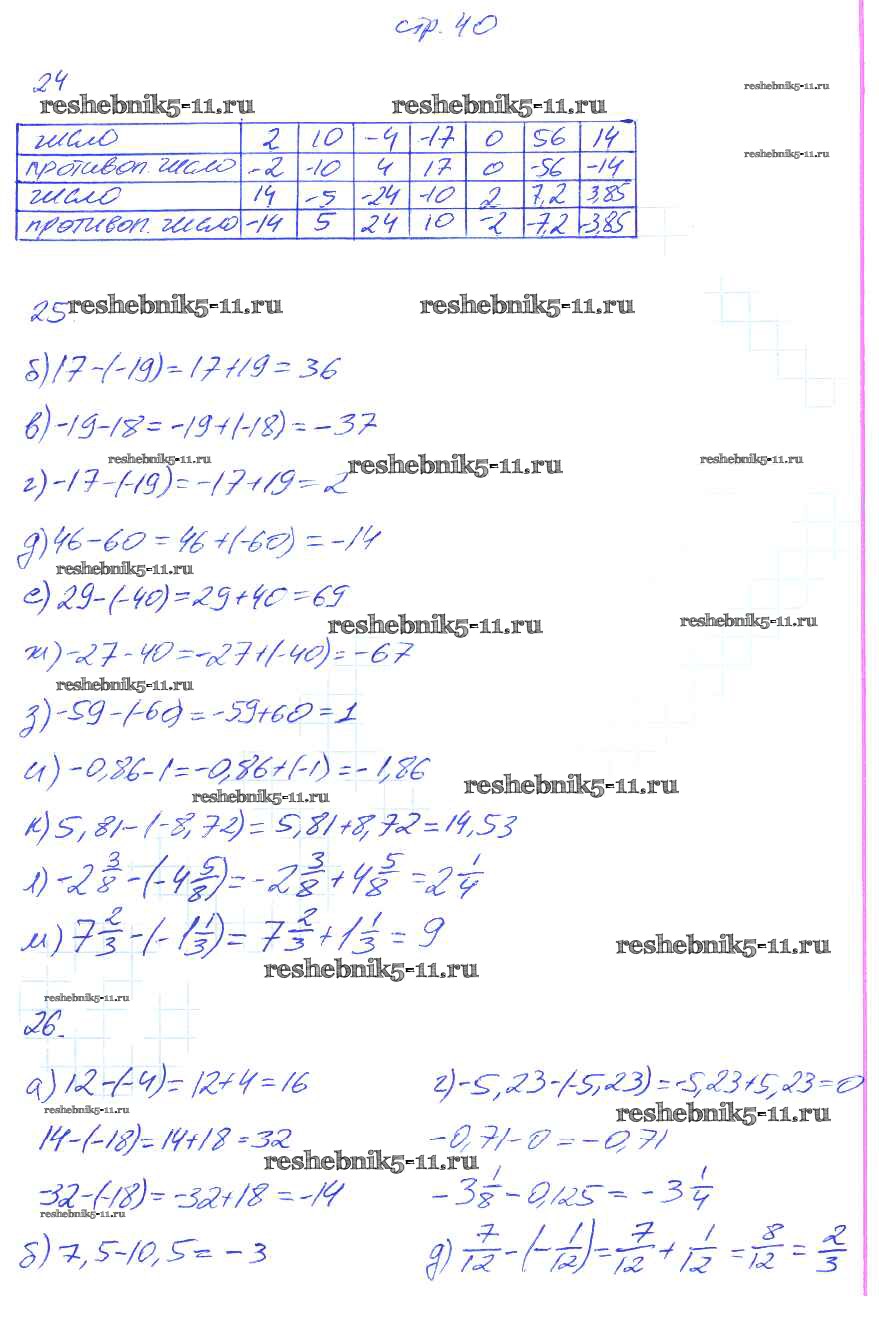 стр. 40
24
reshebnik5-11.ru reshebnik5-11.ru reshebnik5-11.ru
reshebnik5-11.ru
число 2 10 -4 -17 0 56 14
противоп. число -2 -10 4 17 0 -56 -14
число 14 -5 -24 -10 2 7,2 3,85
противоп. число -14 5 24 10 -2 -7,2 -3,85
25. reshebnik5-11.ru reshebnik5-11.ru
б) 17-(-19)=17+19=36
в) -19-18=-19+(-18)=-37
reshebnik5-11.ru reshebnik5-11.ru reshebnik5-11.ru
г) -17-(-19)=-17+19=2
д) 46-60=46+(-60)=-14
reshebnik5-11.ru
е) 29-(-40)=29+40=69
reshebnik5-11.ru reshebnik5-11.ru
ж) -27-40=-27+(-40)=-67
reshebnik5-11.ru
з) -59-(-60)=-59+60=1
и) -0,86-1=-0,86+(-1)=-1,86
reshebnik5-11.ru reshebnik5-11.ru
к) 5,81-(-8,72)=5,81+8,72=14,53
л) -2 3/8-(-4 5/8)=-2 3/8+4 5/8=2 1/4
м) 7 2/3-(-1 1/3)=7 2/3+1 1/3=9
reshebnik5-11.ru reshebnik5-11.ru
reshebnik5-11.ru
26.
а) 12-(-4)=12+4=16
reshebnik5-11.ru
14-(-18)=14+18=32
reshebnik5-11.ru
-32-(-18)=-32+18=-14
reshebnik5-11.ru
б) 7,5-10,5=-3
г) -5,23-(-5,23)=-5,23+5,23=0
reshebnik5-11.ru
-0,71-0=-0,71
-3 1/8-0,125=-3 1/4
д) 7/12-(-1/12)=7/12+1/12=8/12=2/3